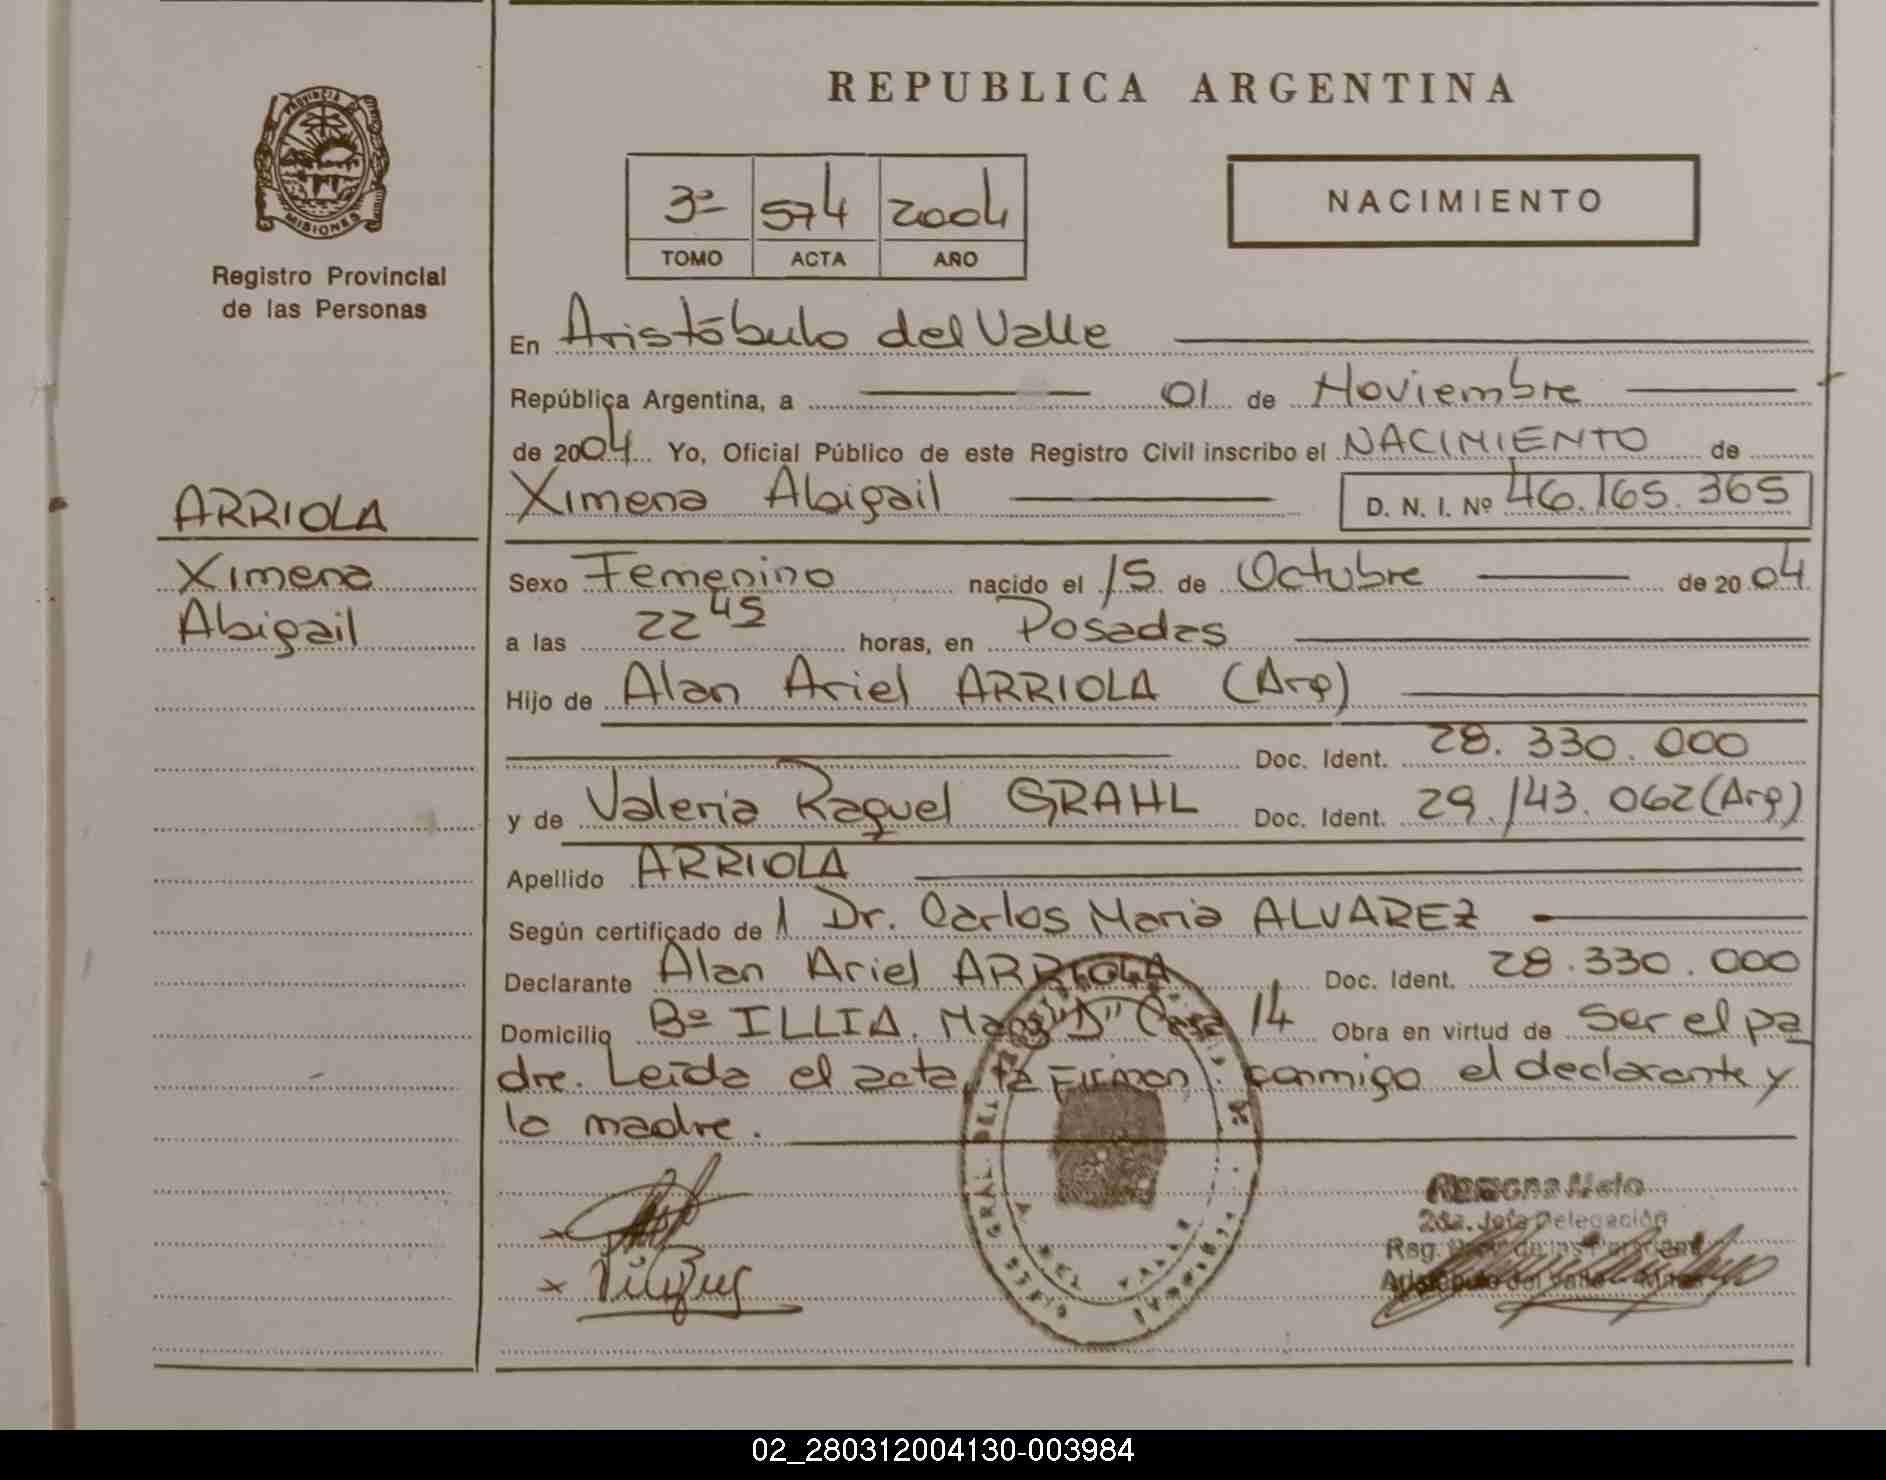 REPUBLICA ARGENTINA
PROVINCIA DE
MISIONES
Registro Provincial
de las Personas
3º 574 2004
TOMO ACTA AÑO
NACIMIENTO
En Aristóbulo del Valle
República Argentina, a 01 de Noviembre
de 2004 Yo, Oficial Público de este Registro Civil inscribo el NACIMIENTO de
Ximena Abigail D. N. I. Nº 46.165.365
ARRIOLA
Ximena
Abigail
Sexo Femenino nacido el 15 de Octubre de 2004
a las 22 45 horas, en Posadas
Hijo de Alan Ariel ARRIOLA (Arg)
Doc. Ident. 28.330.000
y de Valeria Raquel GRAHL Doc. Ident. 29.143.062 (Arg)
Apellido ARRIOLA
Según certificado de Dr. Carlos Maria ALVAREZ
Declarante Alan Ariel ARRIOLA Doc. Ident. 28.330.000
Domicilio Bº ILLIA. "D" Casa 14 Obra en virtud de Ser el pa
dre. Leída el acta, la Firman conmigo el declarante y
la madre.
Ramona Melo
2da. Jefa Delegación
Reg.
Aristóbulo del Valle - Mnes
02_280312004130-003984